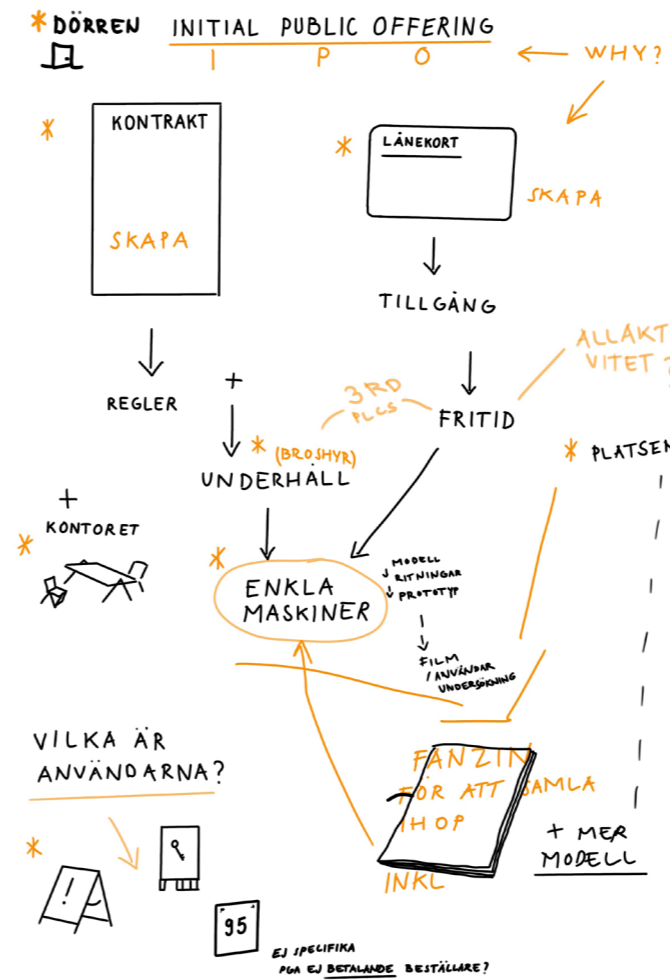 * DÖRREN
INITIAL PUBLIC OFFERING
I P O
← WHY?
* KONTRAKT
SKAPA
* LÅNEKORT
SKAPA
TILLGÅNG
REGLER
+
3RD
PLCS
FRITID
ALLAKT
VITET
* (BROSHYR)
UNDERHÅLL
* PLATSEN
+
KONTORET
*
* ENKLA
MASKINER
MODELL
RITNINGAR
PROTOTYP
FILM
/ANVÄNDAR
UNDERSÖKNING
VILKA ÄR
ANVÄNDARNA?
*
!
95
FANZIN
FÖR ATT SAMLA
IHOP
INKL
+ MER
MODELL
EJ SPECIFIKA
PGA EJ BETALANDE BESTÄLLARE?